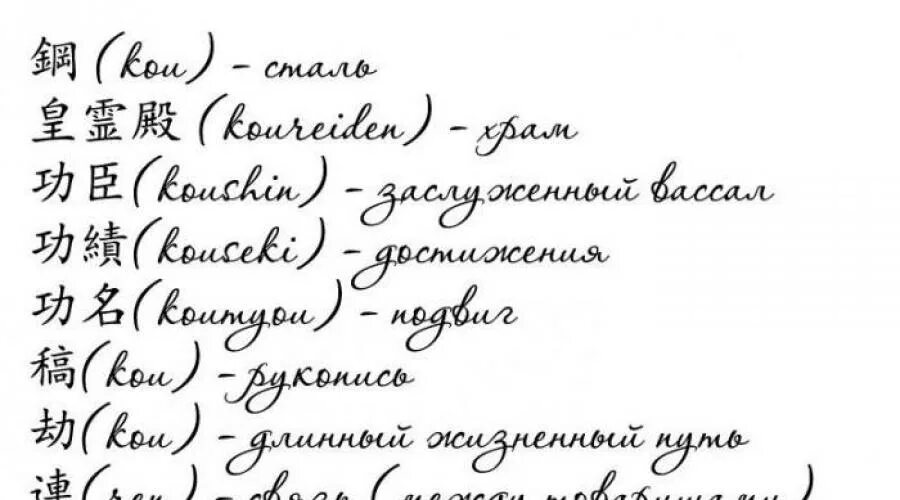 鋼 (kou) - сталь
皇霊殿 (koureiden) - храм
功臣(koushin) - заслуженный вассал
功績(kouseki) - достижения
功名(koumyou) - подвиг
稿(kou) - рукопись
劫(kou) - длинный жизненный путь
連(ren) - связь (между товарищами)